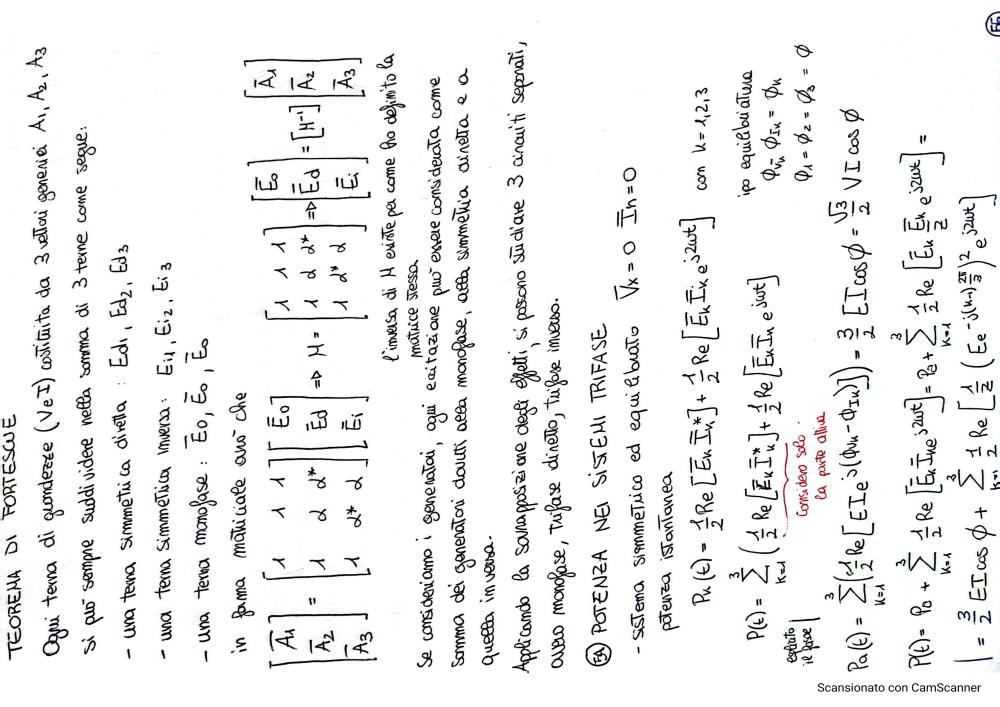 TEOREMA DI FORTESCUE
Ogni terna di grandezze (V e I) costituita da 3 vettori generici A1, A2, A3
si può sempre suddividere nella somma di 3 terne come segue:
- una terna simmetrica diretta : Ed1, Ed2, Ed3
- una terna simmetrica inversa : Ei1, Ei2, Ei3
- una terna monofase : E̅o, E̅o, E̅o
in forma matriciale avrò che
[A̅1 A̅2 A̅3] = [1 1 1; 1 α α*; 1 α* α] [E̅o E̅d E̅i] => M = [1 1 1; 1 α α*; 1 α* α] => [E̅o E̅d E̅i] = [M⁻¹] [A̅1 A̅2 A̅3]
l'inversa di M esiste per come ho definito la
matrice stessa
Se consideriamo i generatori, ogni eccitazione può essere considerata come
somma dei generatori dovuti alla monofase, alla simmetria diretta e a
quella inversa.
Applicando la sovrapposizione degli effetti, si possono studiare 3 circuiti separati,
ovvero monofase, trifase diretto, trifase inverso.
5A POTENZA NEI SISTEMI TRIFASE
- sistema simmetrico ed equilibrato V̅x = 0 I̅n = 0
potenza istantanea
Pk(t) = 1/2 Re[E̅k I̅k*] + 1/2 Re[E̅k I̅k e^j2ωt] con k = 1,2,3
P(t) = Σ³k=1 (1/2 Re[E̅k I̅k*] + 1/2 Re[E̅k I̅k e^jωt]
considero solo
la parte attiva
ipo equilibratura
ϕVk - ϕIk = ϕk
ϕ1 = ϕ2 = ϕ3 = ϕ
esplicito
le fasi
Pa(t) = Σ³k=1 (1/2 Re[E I e^j(ϕVk - ϕIk)]) = 3/2 [E I cosϕ = √3/2 V I cosϕ
P(t) = Po + Σ³k=1 1/2 Re[E̅k I̅k e^j2ωt] = Po + Σ³k=1 1/2 Re[E̅k E̅k/Z̅ e^j2ωt] =
= 3/2 E I cosϕ + Σ³k=1 1/2 Re[1/Z̅ (E e^-j(k-1)2π/3)² e^j2ωt]
Scansionato con CamScanner